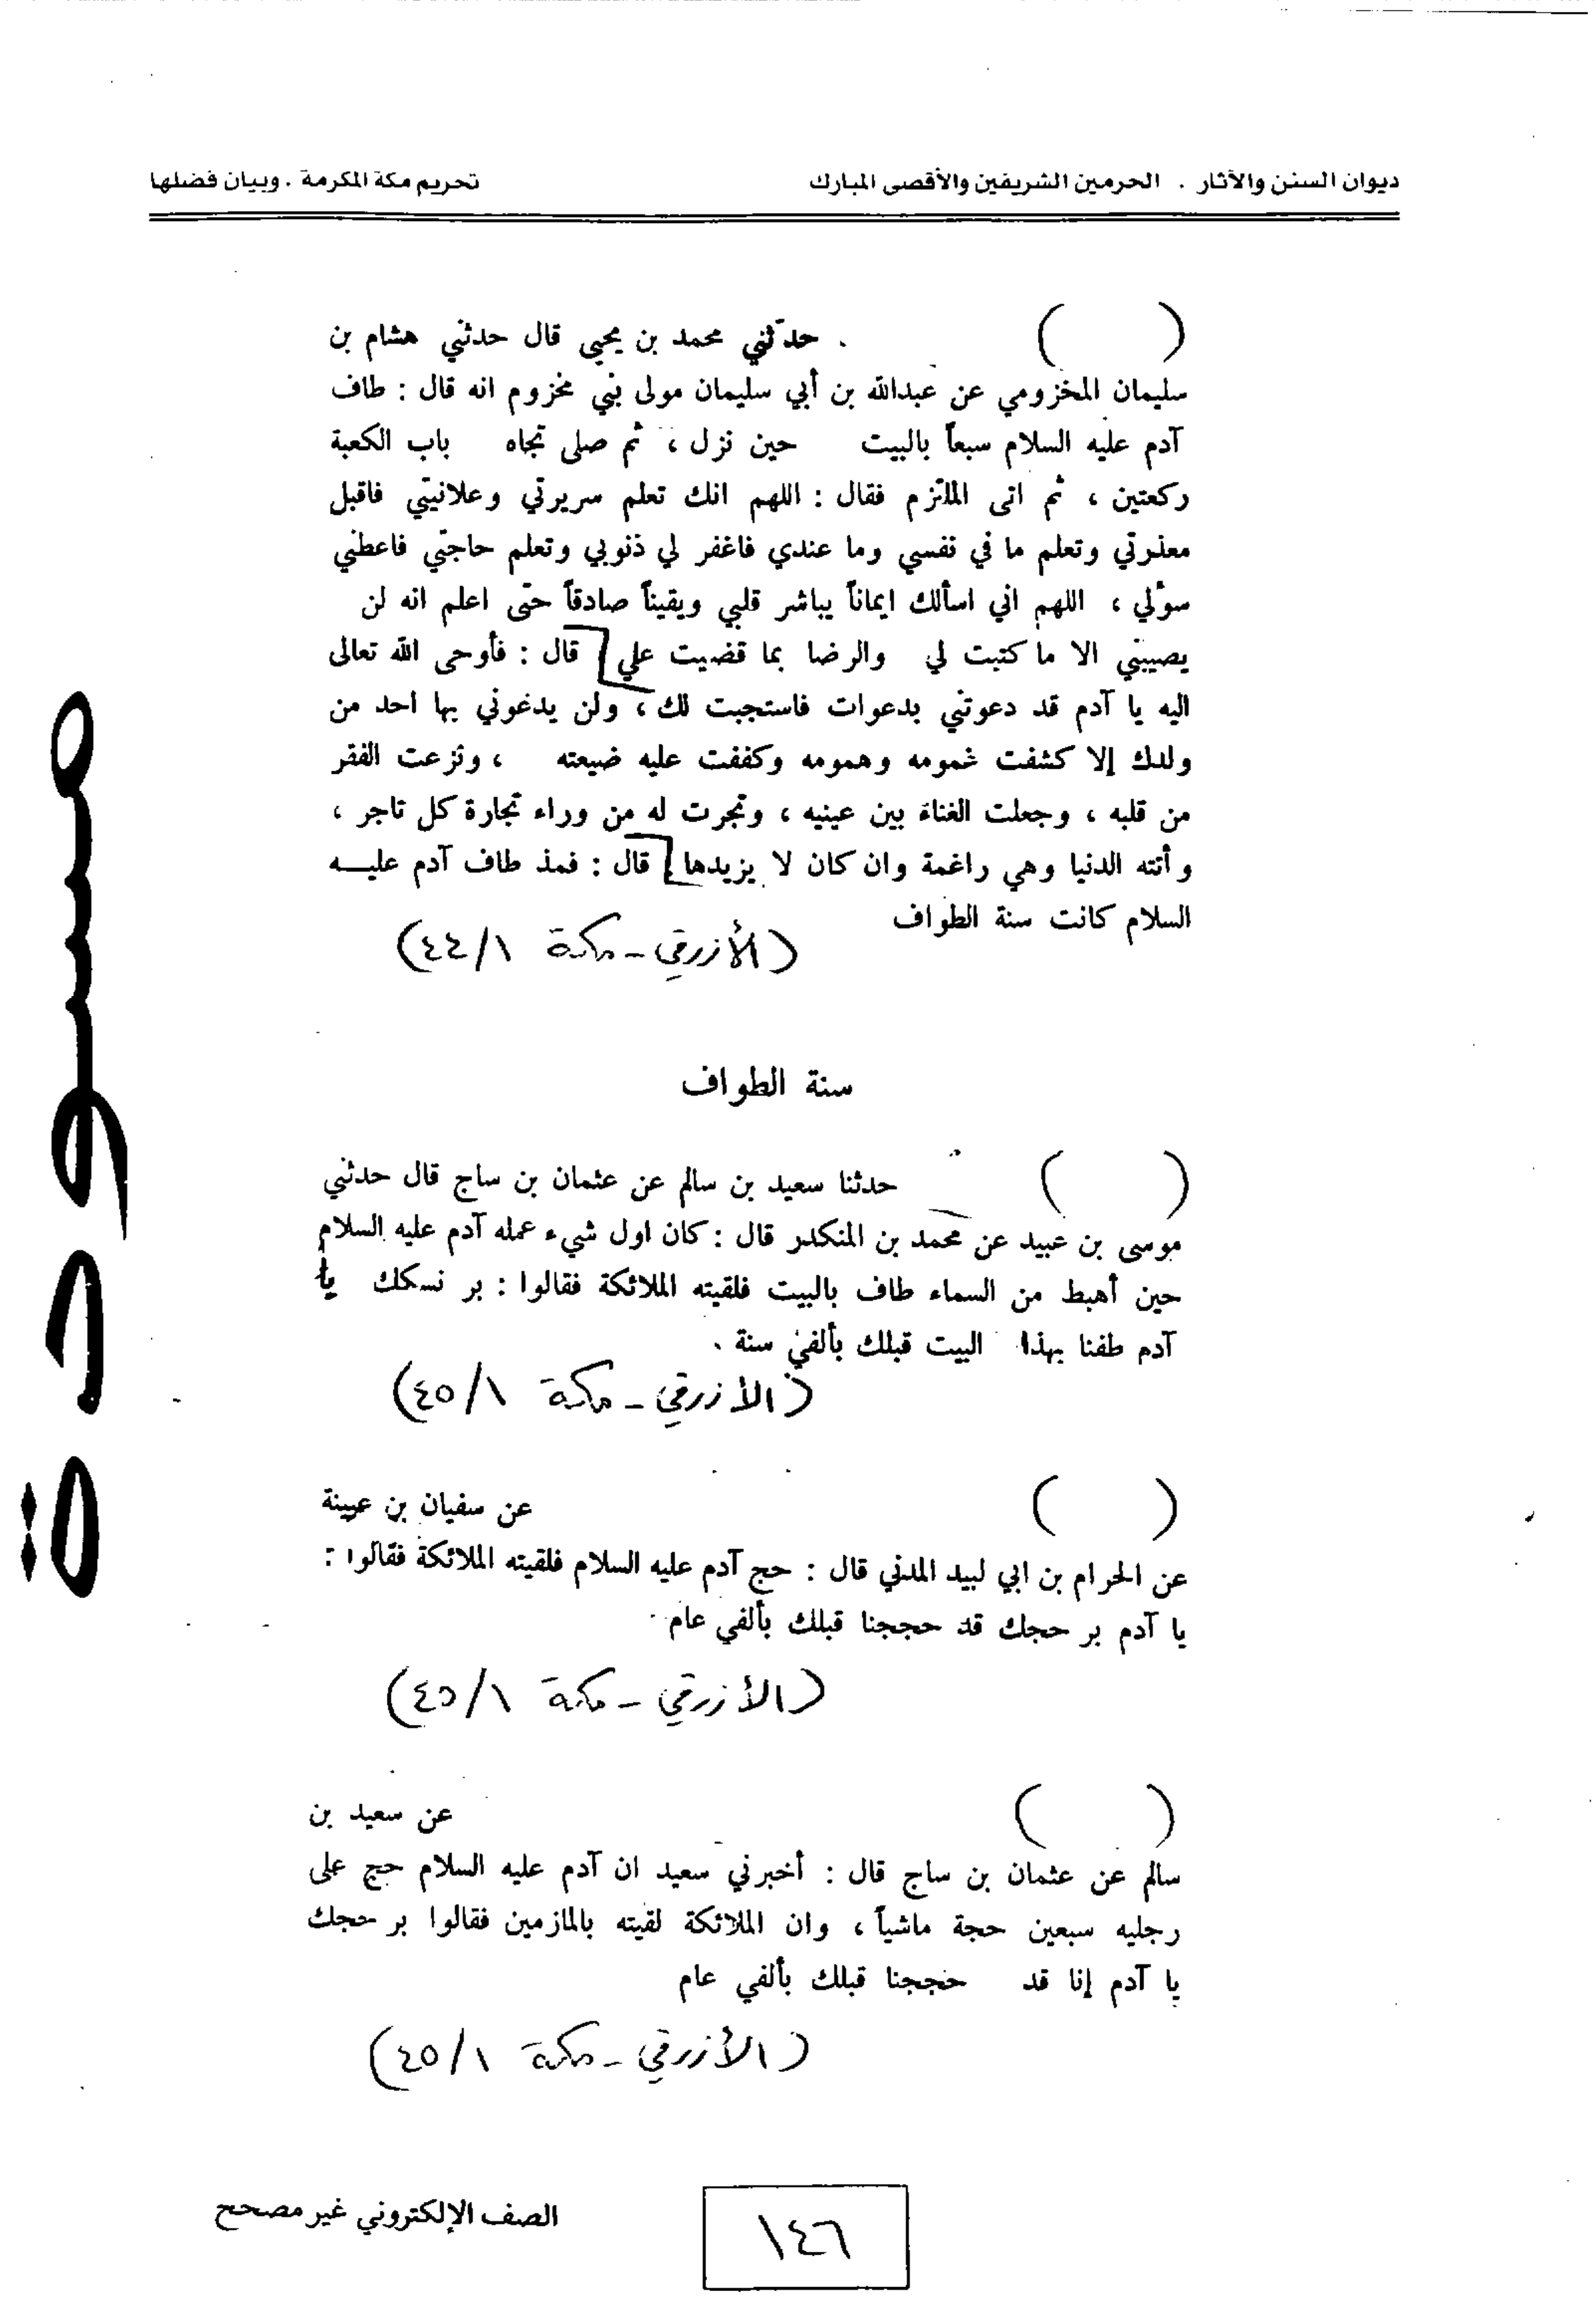 ديوان السنن والآثار . الحرمين الشريفين والأقصى المبارك
تحريم مكة المكرمة . وبيان فضلها
( ) . حدثني محمد بن يحيى قال حدثني هشام بن
سليمان المخزومي عن عبدالله بن أبي سليمان مولى بني مخزوم انه قال : طاف
آدم عليه السلام سبعاً بالبيت حين نزل ، ثم صلى تجاه باب الكعبة
ركعتين ، ثم اتى الملتزم فقال : اللهم انك تعلم سريرتي وعلانيتي فاقبل
معذرتي وتعلم ما في نفسي وما عندي فاغفر لي ذنوبي وتعلم حاجتي فاعطني
سؤلي ، اللهم اني اسألك ايماناً يباشر قلبي ويقيناً صادقاً حتى اعلم انه لن
يصيبني الا ما كتبت لي والرضا بما قضيت علي قال : فأوحى الله تعالى
اليه يا آدم قد دعوتني بدعوات فاستجبت لك ، ولن يدعوني بها احد من
ولدك إلا كشفت غمومه وهمومه وكففت عليه ضيعته ، ونزعت الفقر
من قلبه ، وجعلت الغناء بين عينيه ، وتجرت له من وراء تجارة كل تاجر ،
وأتته الدنيا وهي راغمة وان كان لا يزيدها قال : فمذ طاف آدم عليــه
السلام كانت سنة الطواف
(الأزرقي - مكة ١/٤٤)
سنة الطواف
( ) حدثنا سعيد بن سالم عن عثمان بن ساج قال حدثني
موسى بن عبيد عن محمد بن المنكدر قال : كان اول شيء عمله آدم عليه السلام
حين أهبط من السماء طاف بالبيت فلقيته الملائكة فقالوا : بر نسكك يا
آدم طفنا بهذا البيت قبلك بألفي سنة .
(الأزرقي - مكة ١/٤٥)
( ) عن سفيان بن عيينة
عن الحرام بن ابي لبيد المدني قال : حج آدم عليه السلام فلقيته الملائكة فقالوا :
يا آدم بر حجك قد حججنا قبلك بألفي عام
(الأزرقي - مكة ١/٤٥)
( ) عن سعيد بن
سالم عن عثمان بن ساج قال : أخبرني سعيد ان آدم عليه السلام حج على
رجليه سبعين حجة ماشياً ، وان الملائكة لقيته بالمازمين فقالوا بر حجك
يا آدم إنا قد حججنا قبلك بألفي عام
(الأزرقي - مكة ١/٤٥)
مسودة
الصف الإلكتروني غير مصحح
١٤٦